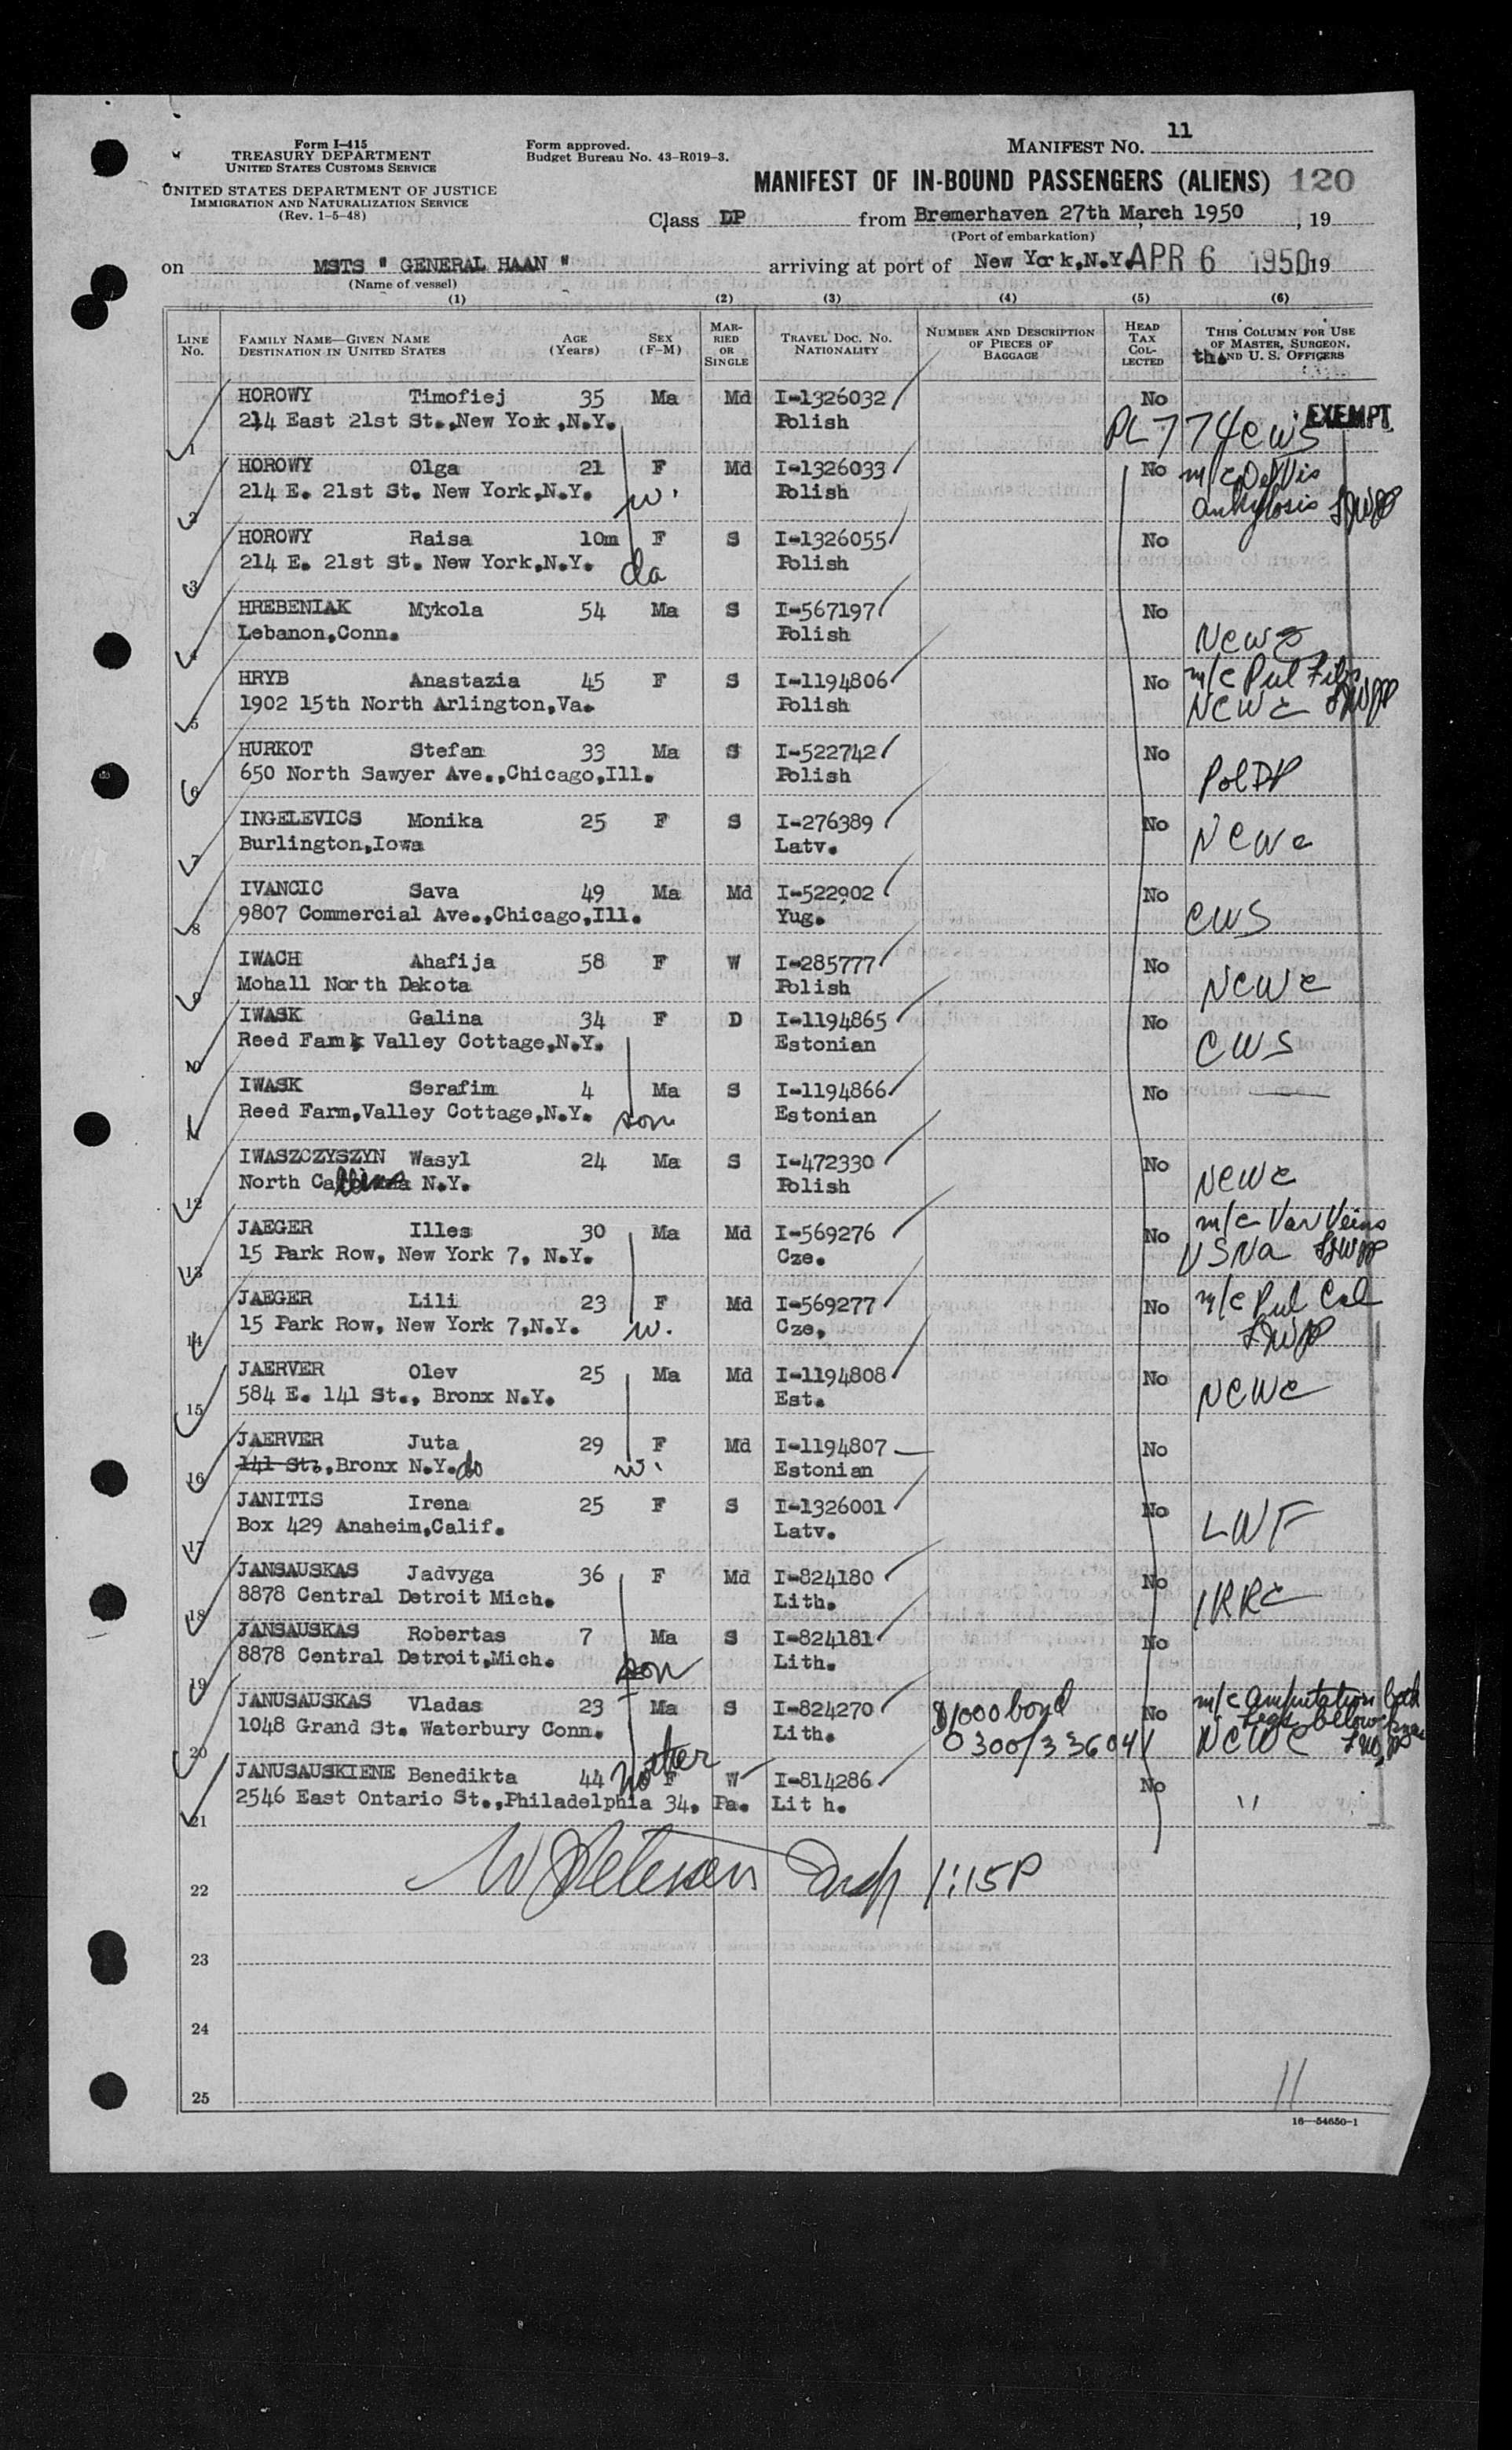 Form I-415
TREASURY DEPARTMENT
UNITED STATES CUSTOMS SERVICE
UNITED STATES DEPARTMENT OF JUSTICE
IMMIGRATION AND NATURALIZATION SERVICE
(Rev. 1-5-48)
Form approved.
Budget Bureau No. 43-R019-3.
MANIFEST NO. 11
MANIFEST OF IN-BOUND PASSENGERS (ALIENS) 120
Class DP from Bremerhaven 27th March 1950, 19
(Port of embarkation)
on MSTS " GENERAL HAAN " arriving at port of New York,N.Y. APR 6 1950 19
(Name of vessel)
(1) (2) (3) (4) (5) (6)
LINE No. FAMILY NAME—GIVEN NAME DESTINATION IN UNITED STATES AGE (Years) SEX (F-M) MARRIED OR SINGLE TRAVEL DOC. NO. NATIONALITY NUMBER AND DESCRIPTION OF PIECES OF BAGGAGE HEAD TAX COLLECTED THIS COLUMN FOR USE OF MASTER, SURGEON, AND U. S. OFFICERS
1 HOROWY Timofiej 35 Ma Md I-1326032 No EXEMPT
214 East 21st St.,New York,N.Y. Polish PL 774 CWS
2 HOROWY Olga 21 F Md I-1326033 No m/c Def Vis
214 E. 21st St. New York,N.Y. w. Polish ankylosis
3 HOROWY Raisa 10m F S I-1326055 No
214 E. 21st St. New York,N.Y. da Polish
4 HREBENIAK Mykola 54 Ma S I-567197 No
Lebanon,Conn. Polish NCWC
5 HRYB Anastazia 45 F S I-1194806 No m/c Pul Fib
1902 15th North Arlington,Va. Polish NCWC
6 HURKOT Stefan 33 Ma S I-522742 No
650 North Sawyer Ave.,Chicago,Ill. Polish Pol DP
7 INGELEVICS Monika 25 F S I-276389 No
Burlington,Iowa Latv. NCWC
8 IVANCIC Sava 49 Ma Md I-522902 No
9807 Commercial Ave.,Chicago,Ill. Yug. CWS
9 IWACH Ahafija 58 F W I-285777 No
Mohall North Dakota Polish NCWC
10 IWASK Galina 34 F D I-1194865 No
Reed Famk Valley Cottage,N.Y. Estonian CWS
11 IWASK Serafim 4 Ma S I-1194866 No
Reed Farm,Valley Cottage,N.Y. son Estonian
12 IWASZCZYSZYN Wasyl 24 Ma S I-472330 No
North N.Y. Polish NCWC
13 JAEGER Illes 30 Ma Md I-569276 No m/c Var Veins
15 Park Row, New York 7, N.Y. Cze. USNA
14 JAEGER Lili 23 F Md I-569277 No m/c Pul Cal
15 Park Row, New York 7,N.Y. w. Cze,
15 JAERVER Olev 25 Ma Md I-1194808 No
584 E. 141 St., Bronx N.Y. Est. NCWC
16 JAERVER Juta 29 F Md I-1194807 No
141 St.,Bronx N.Y. do w. Estonian
17 JANITIS Irena 25 F S I-1326001 No
Box 429 Anaheim,Calif. Latv. LWF
18 JANSAUSKAS Jadvyga 36 F Md I-824180 No
8878 Central Detroit Mich. Lith. IRRC
19 JANSAUSKAS Robertas 7 Ma S I-824181 No
8878 Central Detroit,Mich. son Lith.
20 JANUSAUSKAS Vladas 23 Ma S I-824270 $1000 bond No m/c amputation both legs below knee
1048 Grand St. Waterbury Conn. Lith. 0300/33604 NCWC
21 JANUSAUSKIENE Benedikta 44 mother F W I-814286 No
2546 East Ontario St.,Philadelphia 34. Pa. Lit h. "
22 1:15P
23
24
25
11
16—54650-1